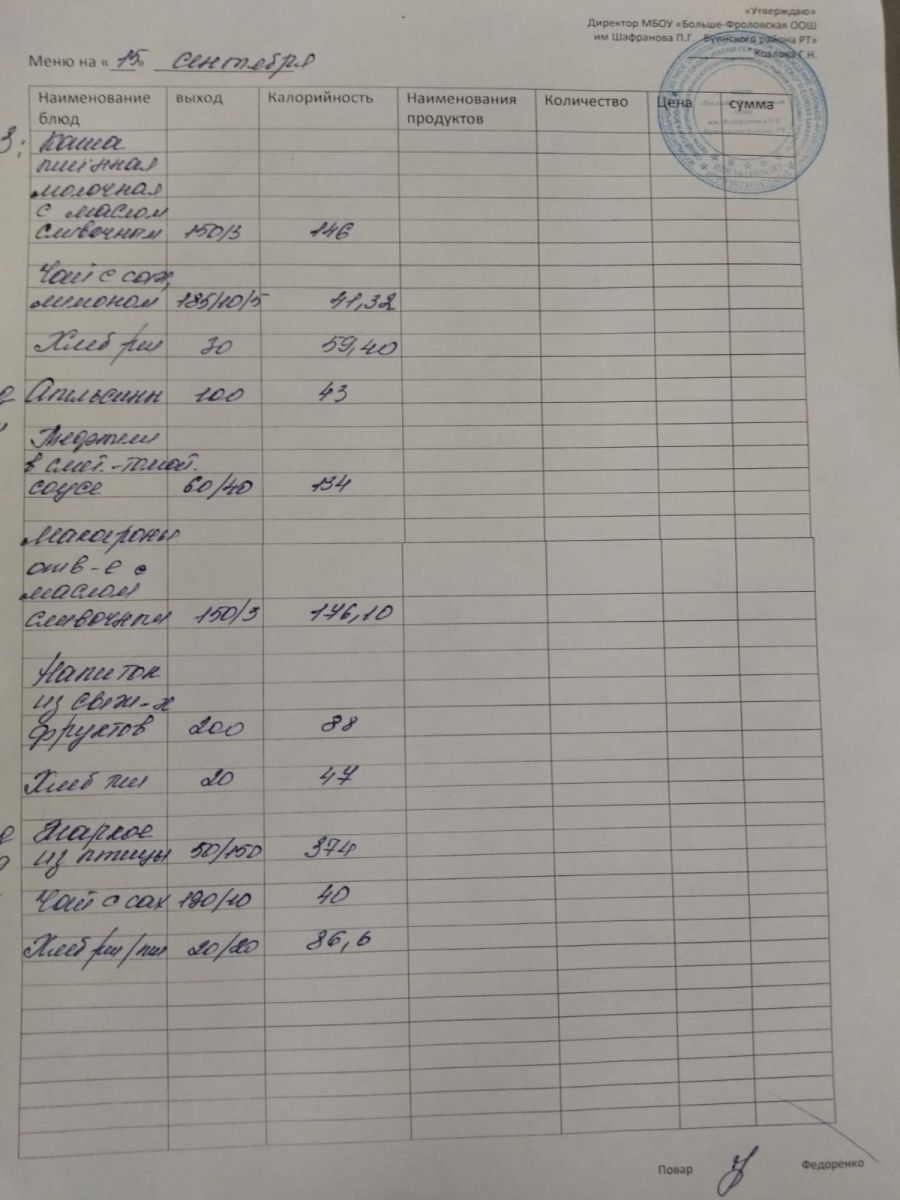 «Утверждаю»
Директор МБОУ «Больше-Фроловская ООШ
им Шафранова П.Г. Буинского района РТ»
Козлова Г.Н.
Меню на « 15 » сентября
Наименование блюд выход Калорийность Наименования продуктов Количество Цена сумма
З: Каша
пшённая
молочная
с маслом
сливочным 150/3 146
Чай с сах,
лимоном 185/10/5 41,32
Хлеб рж 30 59,40
Апельсины 100 43
в смет.-томат.
соусе 60/40 134
Макароны
отв-е с
маслом
сливочным 150/3 176,10
Напиток
из свеж-х
фруктов 200 88
Хлеб пш 20 47
Жаркое
из птицы 50/150 374
Чай с сах 190/10 40
Хлеб рж/пш 20/20 86,6
Повар Федоренко